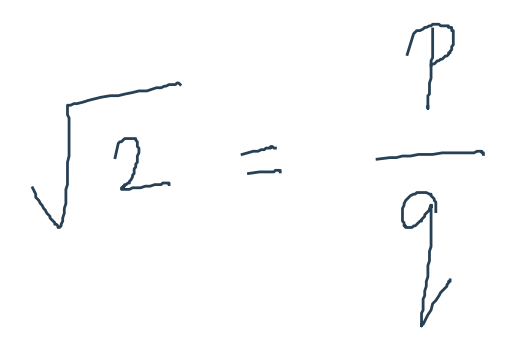 √2 = p/q